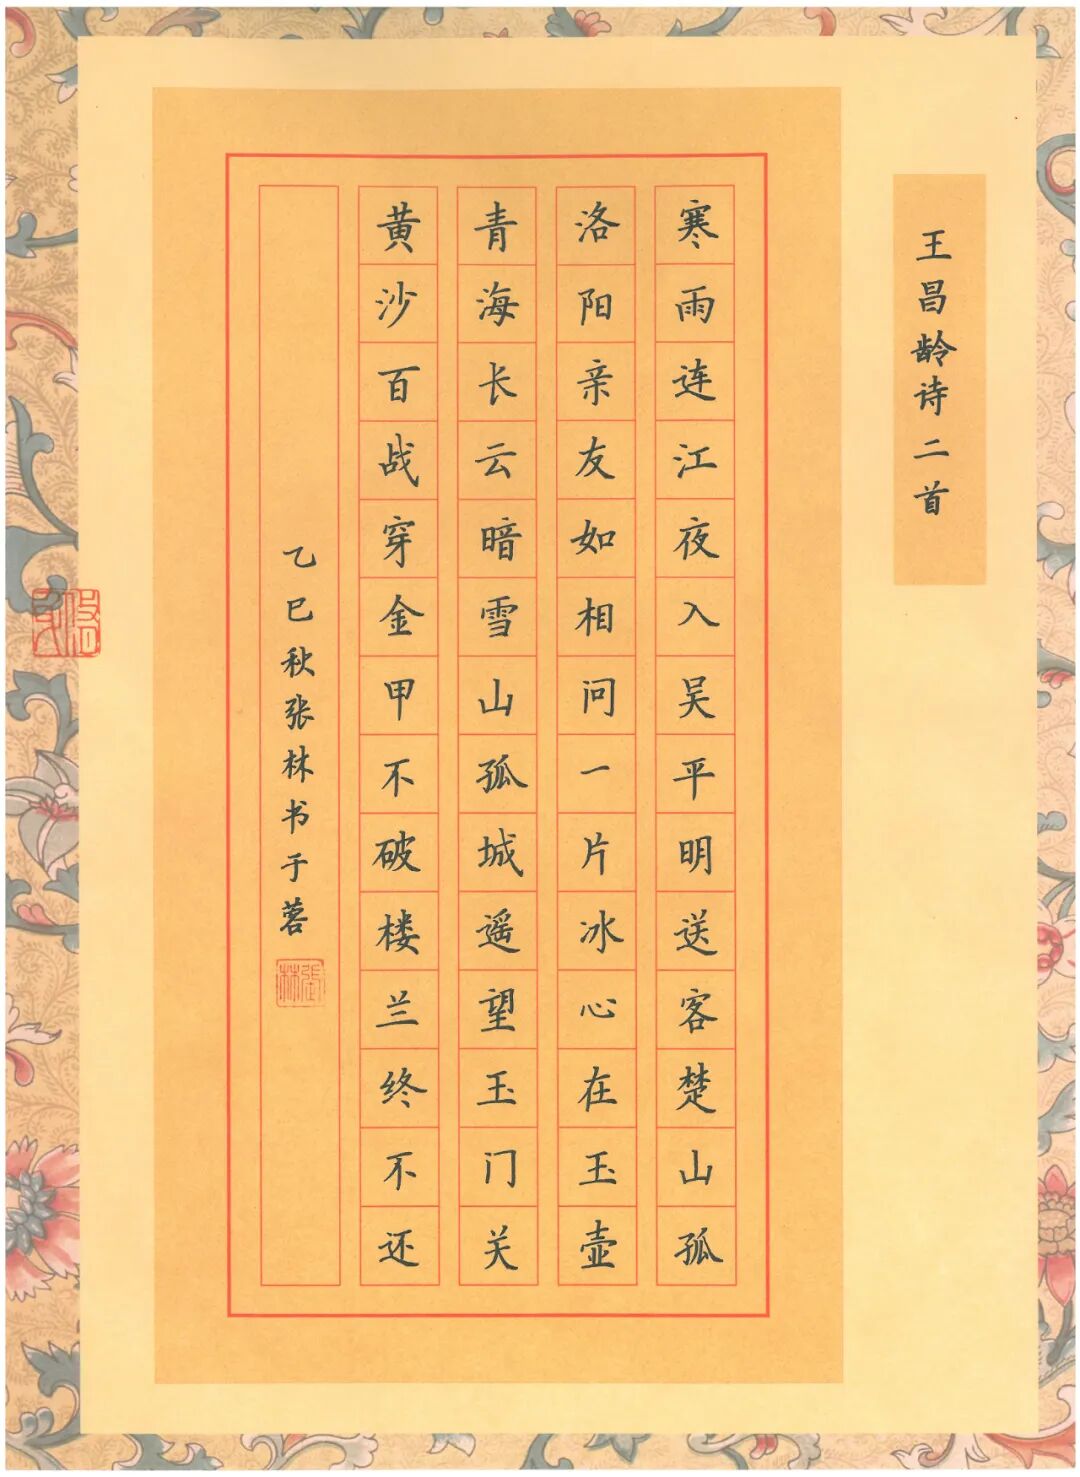 王昌龄诗二首
寒雨连江夜入吴平明送客楚山孤
洛阳亲友如相问一片冰心在玉壶
青海长云暗雪山孤城遥望玉门关
黄沙百战穿金甲不破楼兰终不还
乙巳秋张林书于蓉
張林